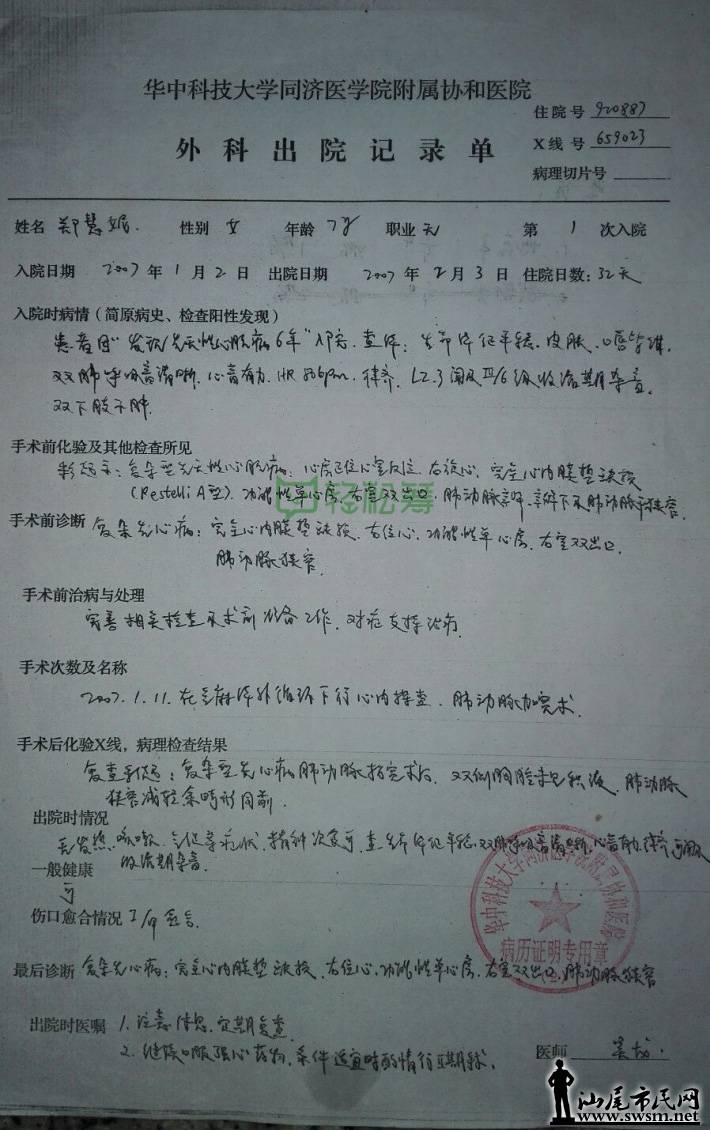 华中科技大学同济医学院附属协和医院
住院号 920887
外科出院记录单
X线号 659023
病理切片号
姓名 郑慧娟 性别 女 年龄 7岁 职业 无 第 1 次入院
入院日期 2007 年 1 月 2 日 出院日期 2007 年 2 月 3 日 住院日数: 32天
入院时病情（简原病史、检查阳性发现）
患者因"发现先天性心脏病6年"入院. 查体: 生命体征平稳, 皮肤、口唇
双肺呼吸音清晰. 心音有力, HR 86bpm. 律齐. L2.3闻及Ⅲ/6级收缩期杂音.
双下肢不肿.
手术前化验及其他检查所见
彩超示: 复杂型先天性心脏病: 心房 右旋心. 完全心内膜垫缺损
(Restelli A型). 功能性单心房. 右室双出口. 肺动脉
轻松筹
手术前诊断 复杂先心病: 完全心内膜垫缺损. 右位心. 功能性单心房. 右室双出口.
肺动脉狭窄.
手术前治病与处理
完善相关检查及术前准备工作. 对症支持治疗.
手术次数及名称
2007.1.11. 在全麻体外循环下行心内探查. 肺动脉加宽术.
手术后化验X线，病理检查结果
复查彩超: 复杂型先心病肺动脉扩宽术后. 双侧胸腔未见积液. 肺动脉
狭窄减轻余畸形同前.
出院时情况
无发热. 咳嗽. 气促等症状. 精神饮食可. 查: 生命体征平稳. 双肺呼吸音清晰. 心音有力. 律齐 可闻及
收缩期杂音.
一般健康
可
伤口愈合情况 I/甲愈合.
华中科技大学同济医学院附属协和医院
病历证明专用章
最后诊断 复杂先心病: 完全心内膜垫缺损. 右位心. 功能性单心房. 右室双出口. 肺动脉狭窄
出院时医嘱 1. 注意休息. 定期复查
2. 继续口服强心药物. 条件适宜时酌情行Ⅱ期手术.
医师
汕尾市民网
www.swsm.net